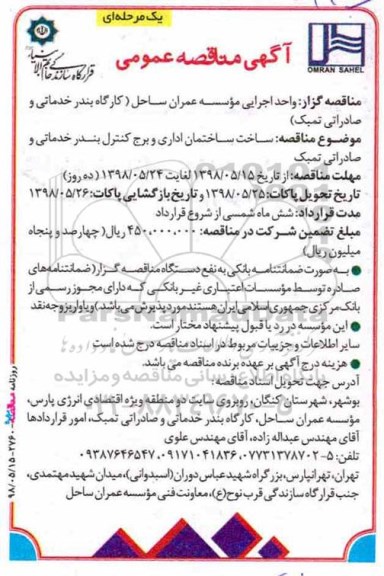 یک مرحله‌ای
آگهی مناقصه عمومی
OMRAN SAHEL
مناقصه گزار: واحد اجرایی مؤسسه عمران ساحل (کارگاه بندر خدماتی و
صادراتی تمبک)
موضوع مناقصه: ساخت ساختمان اداری و برج کنترل بندر خدماتی و
صادراتی تمبک
مهلت مناقصه: از تاریخ ۱۳۹۸/۰۵/۱۵ لغایت ۱۳۹۸/۰۵/۲۴ (ده روز)
تاریخ تحویل پاکات: ۱۳۹۸/۰۵/۲۵ و تاریخ بازگشایی پاکات: ۱۳۹۸/۰۵/۲۶
مدت قرارداد: شش ماه شمسی از شروع قرارداد
مبلغ تضمین شرکت در مناقصه: ۴۵۰,۰۰۰,۰۰۰ ریال( چهارصد و پنجاه
میلیون ریال)
به صورت ضمانتنامه بانکی به نفع دستگاه مناقصه گزار( ضمانتنامه‌های
صادره توسط مؤسسات اعتباری غیر بانکی که دارای مجوز رسمی از
بانک مرکزی جمهوری اسلامی ایران هستند مورد پذیرش می‌باشد) و یا واریز وجه نقد
این مؤسسه در رد یا قبول پیشنهاد مختار است.
سایر اطلاعات و جزییات مربوط در اسناد مناقصه درج شده است
هزینه درج آگهی بر عهده برنده مناقصه می باشد.
آدرس جهت تحویل اسناد مناقصه:
بوشهر، شهرستان کنگان، روبروی سایت دو منطقه ویژه اقتصادی انرژی پارس،
مؤسسه عمران ساحل، کارگاه بندر خدماتی و صادراتی تمبک، امور قراردادها
آقای مهندس عبداله زاده، آقای مهندس علوی
تلفن: ۵-۰۷۷۳۱۳۷۸۷۰۲، ۰۹۱۷۱۰۴۱۸۳۶، ۰۹۳۸۷۶۴۶۵۴۷
تهران، تهرانپارس، بزرگراه شهید عباس دوران (اسبدوانی)، میدان شهید مهتمدی،
جنب قرارگاه سازندگی قرب نوح(ع)، معاونت فنی مؤسسه عمران ساحل